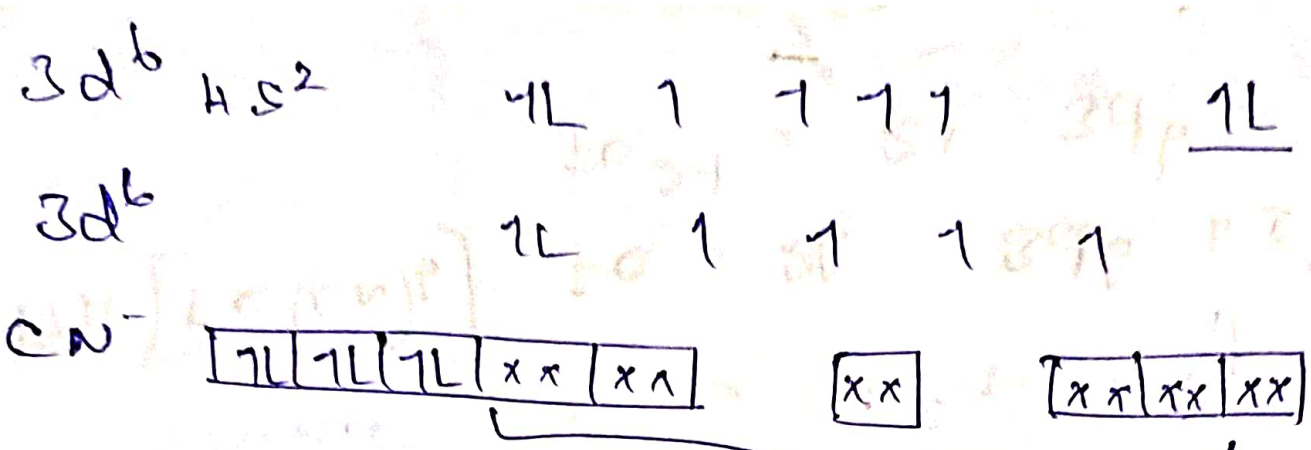 3d⁶ 4s² 1L 1 1 1 1 1L
3d⁶ 1L 1 1 1 1
CN⁻ 1L 1L 1L xx xx xx xx xx xx